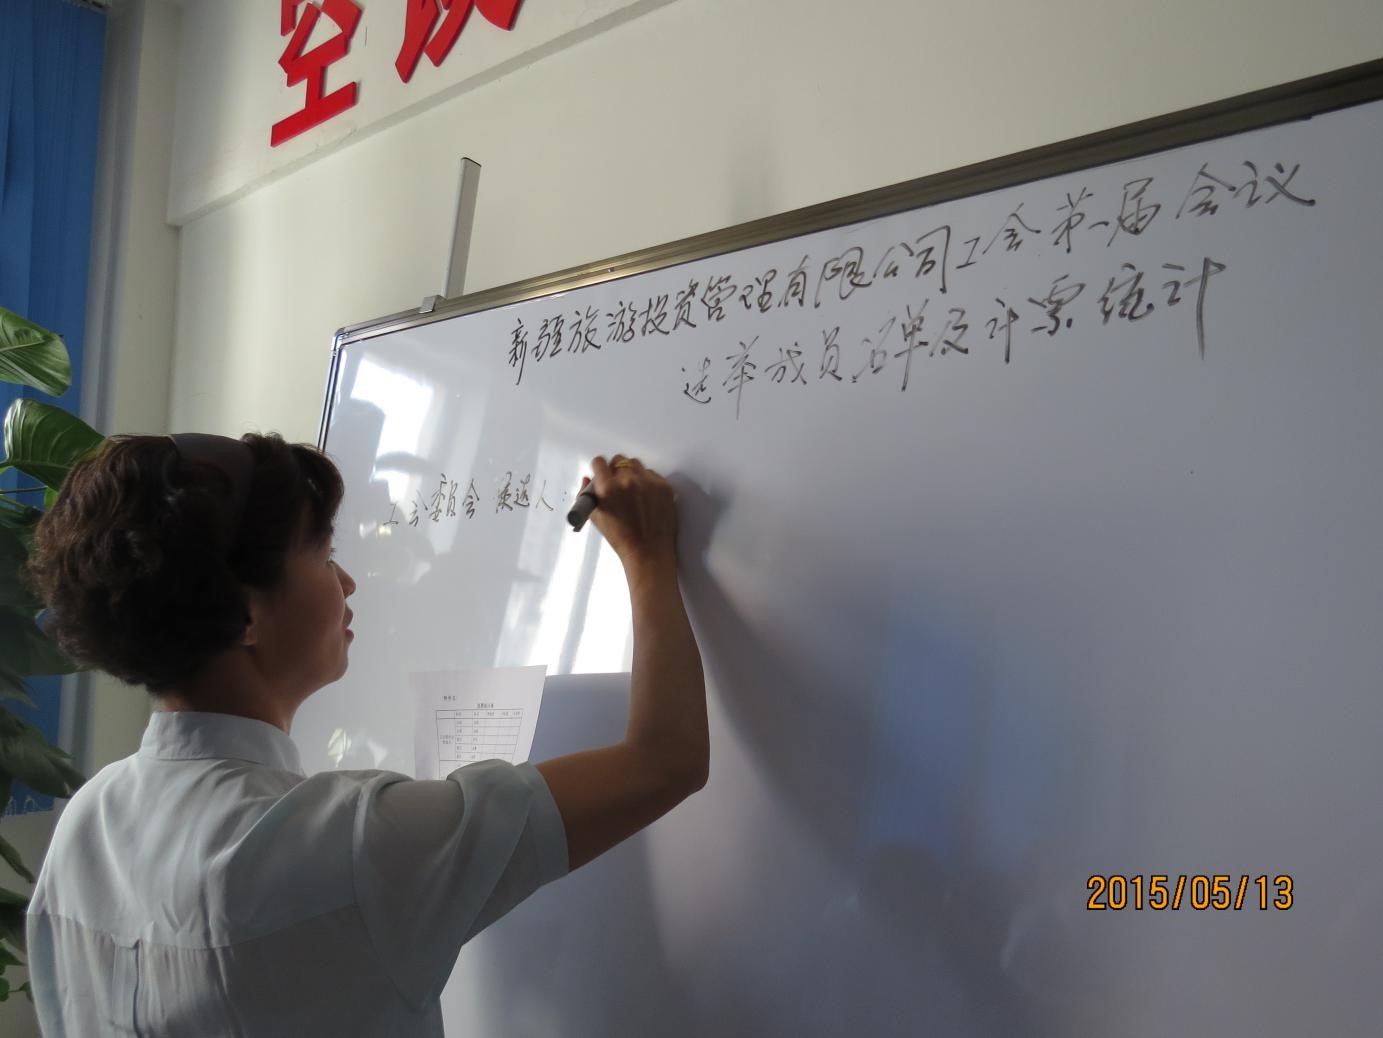 空谈
新疆旅游投资管理有限公司工会第一届会议
选举成员名单及计票统计
工会委员会 候选人：
2015/05/13